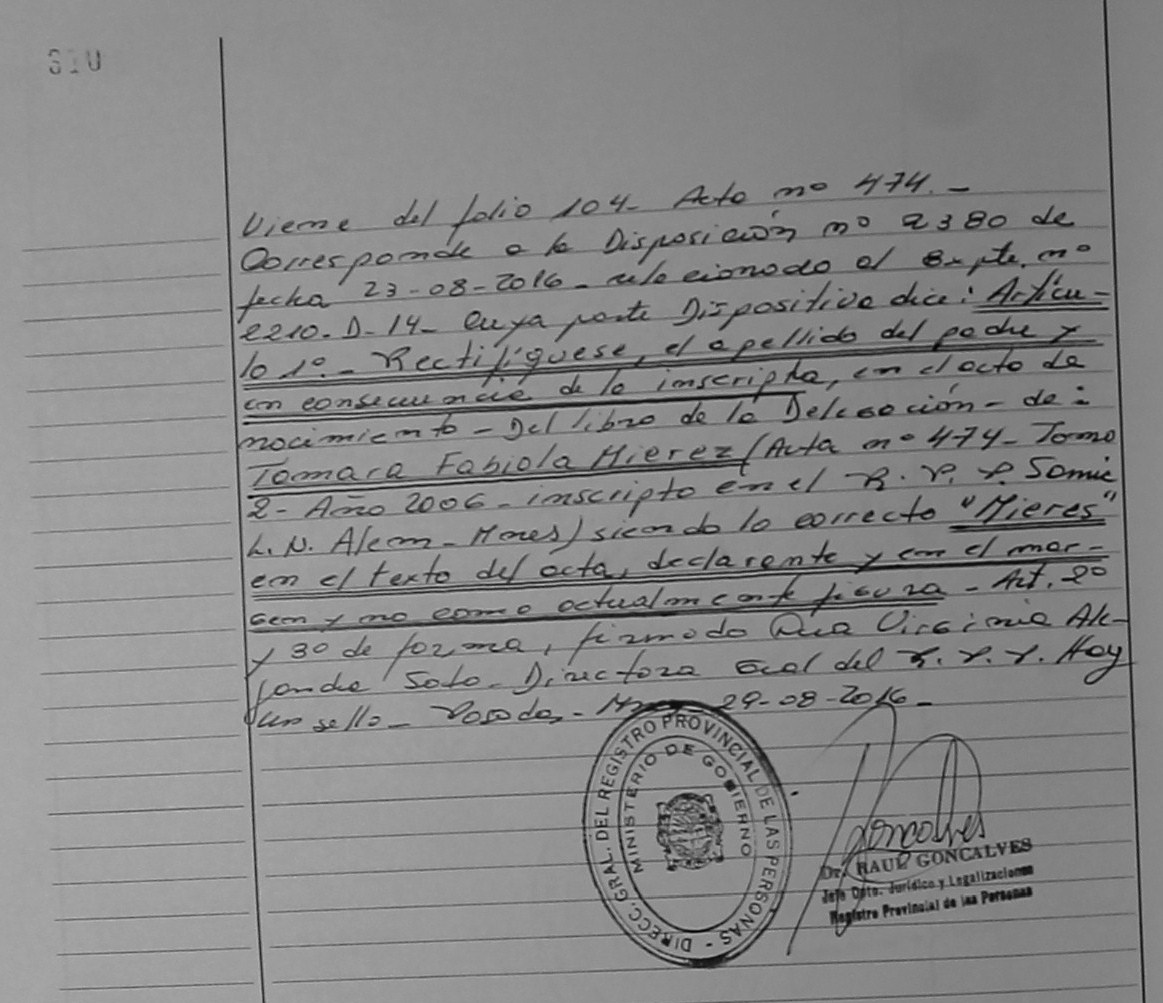 310
Viene del folio 104- Acta nº 474.-
Corresponde a la Disposición nº 2380 de
fecha 23-08-2016- relacionado al Expte. nº
2210-D-14- Cuya parte Dispositiva dice: Artícu-
lo 1º- Rectifíquese, el apellido del padre y
en consecuencia de la inscripta, en el acto de
nacimiento- Del libro de la Delegación- de:
Tamara Fabiola Mierez/(Acta nº 474- Tomo
2- Año 2006- inscripto en el R. P. P. Samic
L. N. Alem- Mnes) siendo lo correcto "Mieres"
en el texto del acta, declarante y en el mar-
gen y no como actualmente figura- Art. 2º
y 3º de forma, firmado Dra Virginia Ale-
jandra Soto- Directora Gral del R. P. P. Hay
un sello- Posadas- 29-08-2016-
DIRECC. GRAL. DEL REGISTRO PROVINCIAL DE LAS PERSONAS -
MINISTERIO DE GOBIERNO
Goncalves
Dr. RAUL GONCALVES
Jefe Dpto. Jurídico y Legalizaciones
Registro Provincial de las Personas